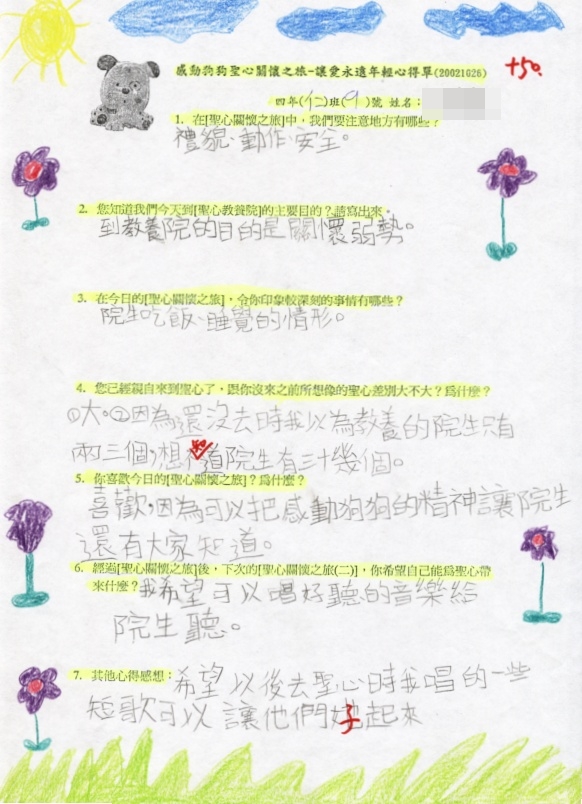 感動狗狗聖心關懷之旅-讓愛永遠年輕心得單(20021026)
+50
四年(仁)班(9)號 姓名：
1. 在[聖心關懷之旅]中，我們要注意地方有哪些？
禮貌、動作、安全。
2. 您知道我們今天到[聖心教養院]的主要目的？請寫出來。
到教養院的目的是關懷弱勢。
3. 在今日的[聖心關懷之旅]，令你印象較深刻的事情有哪些？
院生吃飯、睡覺的情形。
4. 您已經親自來到聖心了，跟你沒來之前所想像的聖心差別大不大？爲什麼？
①大。②因為還沒去時我以為教養的院生只有
兩三個，想不知道院生有三十幾個。
5. 你喜歡今日的[聖心關懷之旅]？爲什麼？
喜歡，因為可以把感動狗狗的精神讓院生
還有大家知道。
6. 經過[聖心關懷之旅]後，下次的[聖心關懷之旅(二)]，你希望自己能爲聖心帶
來什麼？我希望可以唱好聽的音樂給
院生聽。
7. 其他心得感想：希望以後去聖心時我唱的一些
短歌可以讓他們好起來